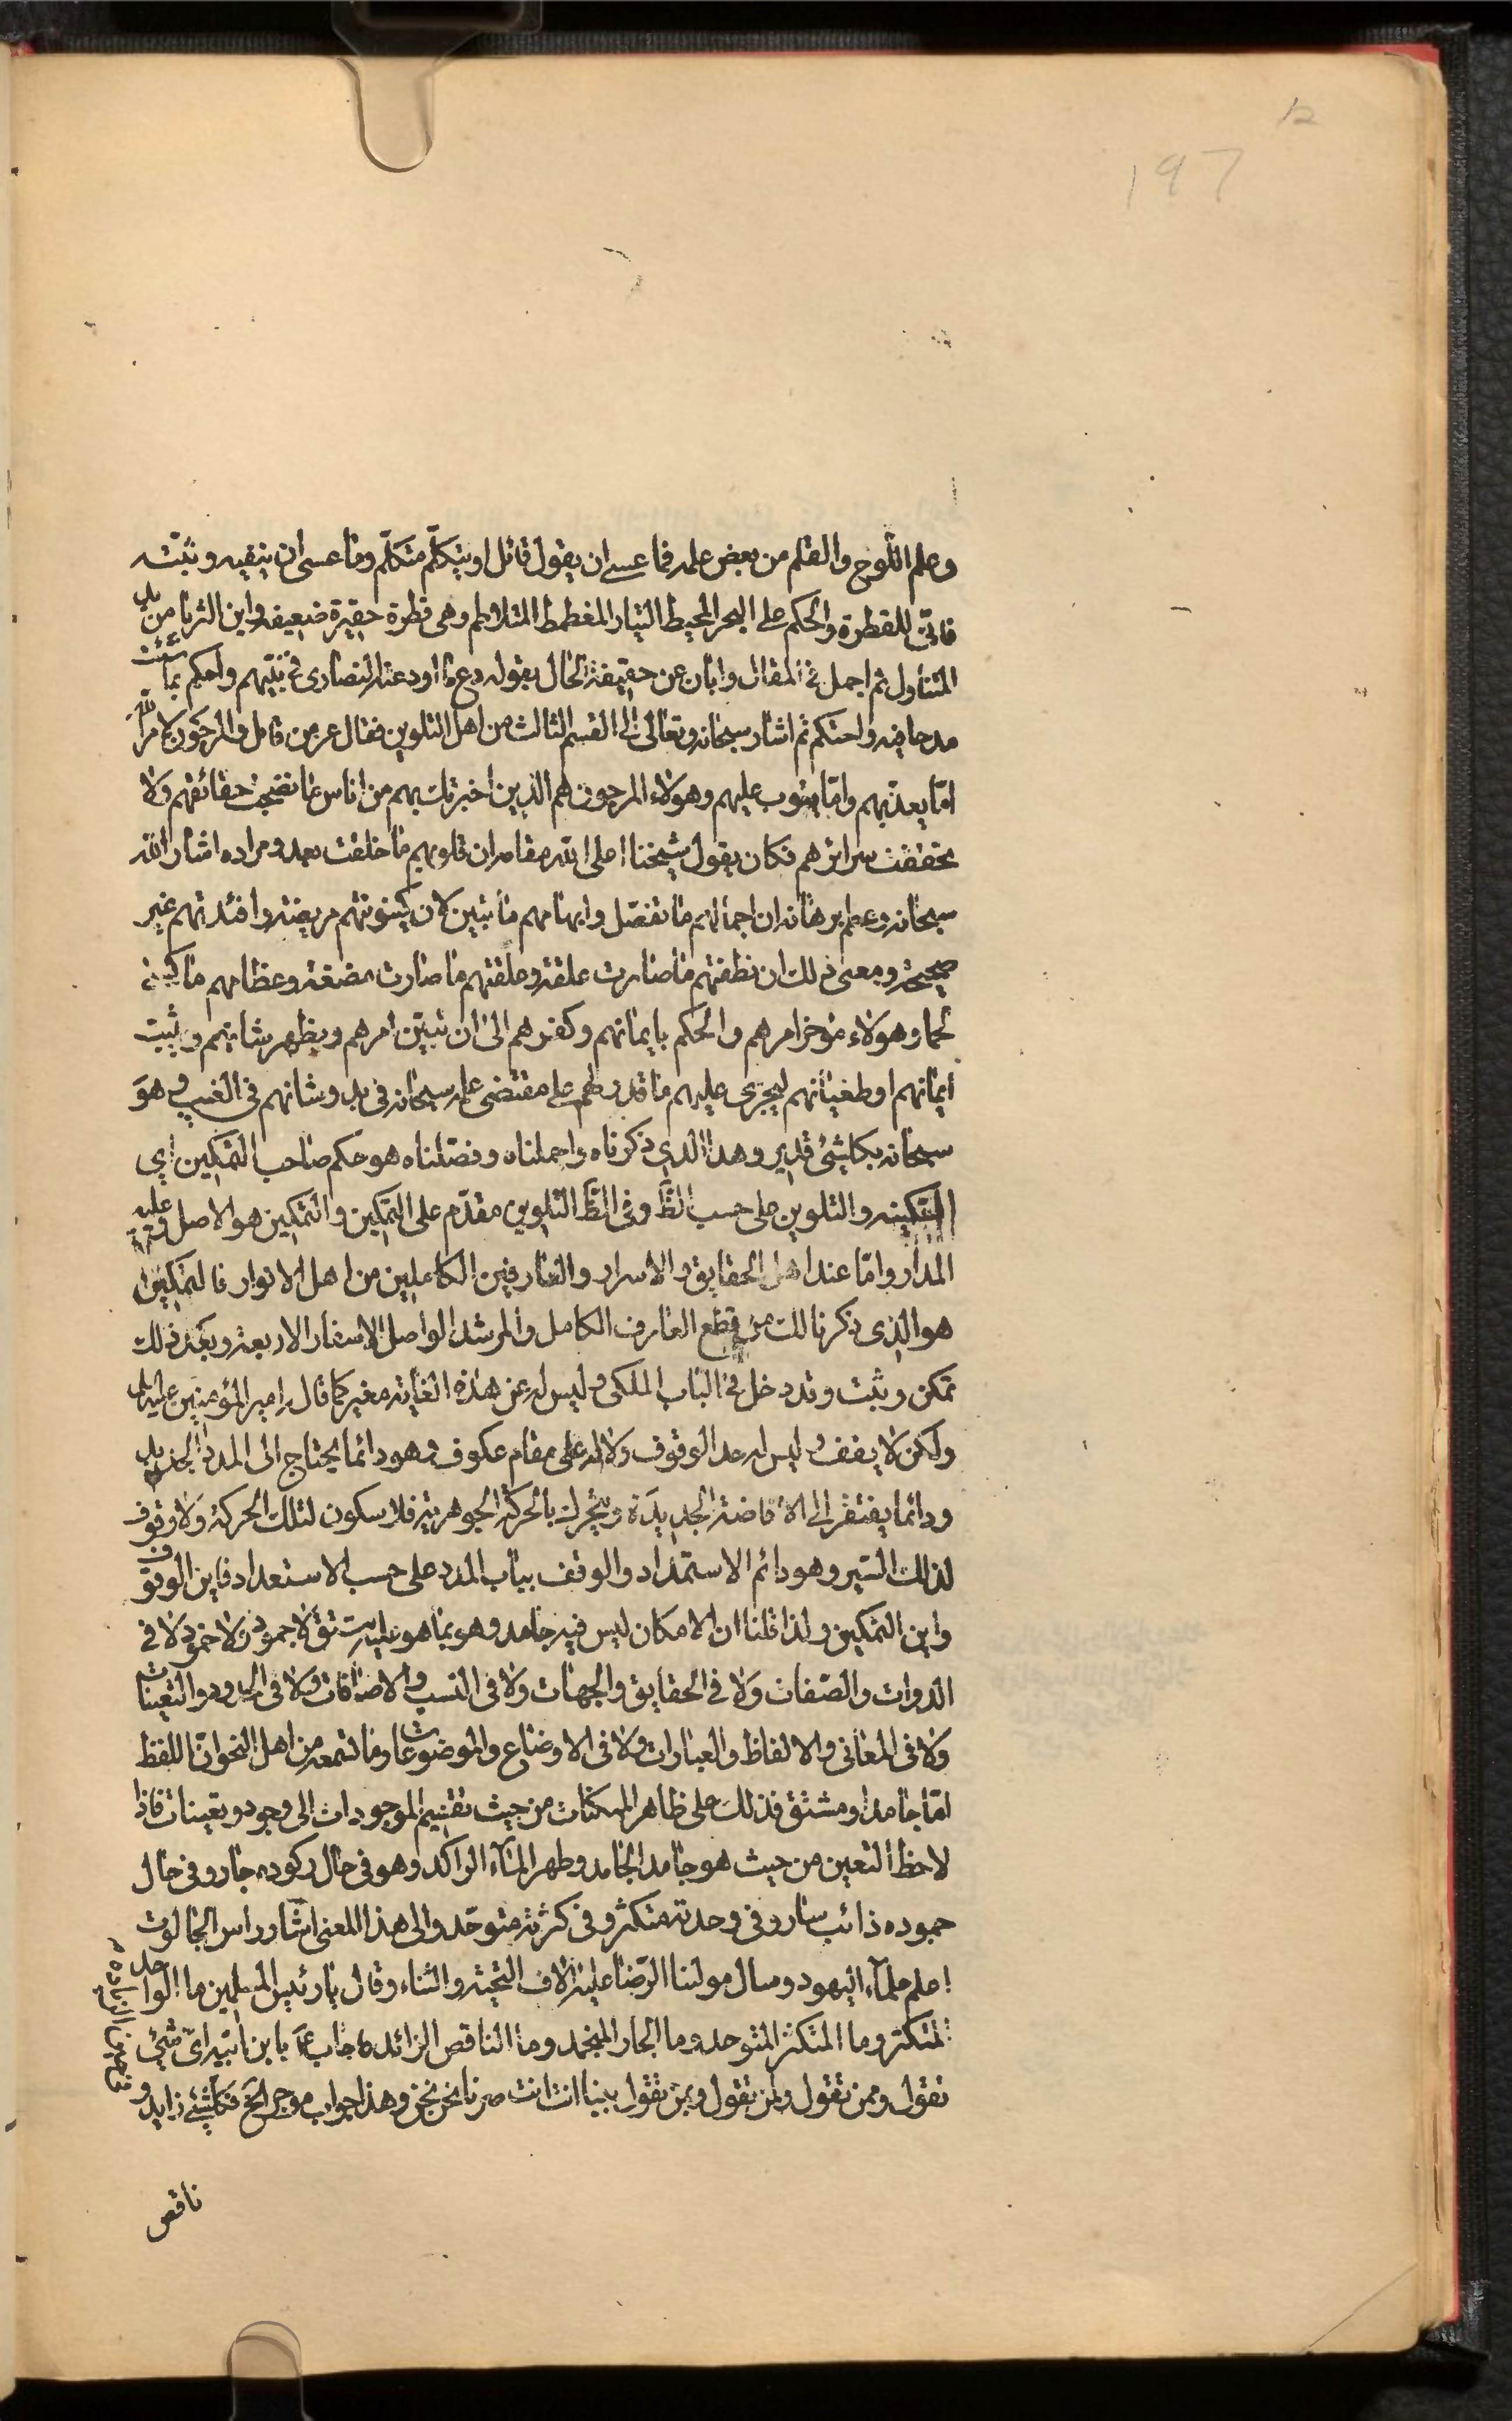 12
197
وعلم اللوح والقلم من بعض علمه فما عسى ان يقول قائل او يتكلّم متكلّم وما عسى ان ينقيه ويثبته
فانّى للقطرة والحكم على البحر المحيط التيار المغطمط المتلاطم وهى قطرة حقيرة ضعيفة واين الثريا من يد
المتناول ثم اجمل فى المقال وابان عن حقيقة الحال بقوله دع ما اودعته النصارى فى نبيّهم واحكم بما شئت
مدحا فيه واحتكم ثم اشار سبحانه وتعالى الى القسم الثالث من اهل التلوين فقال عز من قائل والمرجَون لامر اللّه
امّا يعذّبهم وامّا يتوب عليهم وهولاء المرجون هم الذين اخبرتك بهم من اناس ما نضجت حقائقهم ولا
تحققت سرائرهم فكان يقول شيخنا اعلى اللّه مقامه ان قلوبهم ما خلقت بعد ومراده اشار اللّه
سبحانه وعظم برهانه ان اجمالهم ما تفصّل وابهامهم ما تبيّن لان كينونتهم مريضة وافئدتهم غير
صحيحة ومعنى ذلك ان نطفتهم ما صارت علقة وعلقتهم ما صارت مضغة وعظامهم ما كسيت
لحما وهولاء مؤخر امرهم والحكم بايمانهم وكفرهم الى ان تبيّن امرهم ويظهر شانهم ويثبت
ايمانهم او طغيانهم ليجرى عليهم ما قدر لهم على مقتضى علمه سبحانه فى بدو شانهم فى الغيب وهو
سبحانه بكلشئ قدير وهذا الذى ذكرناه واجملناه وفصّلناه هو حكم صاحب التمكين اى
التمكين والتلوين على حسب الظّ وفى الظّ التلوين مقدّم على التمكين والتمكين هو الاصل وعليه
المدار وامّا عند اهل الحقايق والاسرار والعارفين الكاملين من اهل الانوار فالتمكين
هو الذى ذكرنا لك من قطع العارف الكامل والمرشد الواصل الاسفار الاربعة وبعد ذلك
تمكن وثبت وقد دخل فى الباب الملكى وليس له عن هذه الغاية مغير كما قال امير المؤمنين عليه السلام
ولكن لا يقف وليس له حد الوقوف ولا له على مقام عكوف وهو دائما يحتاج الى المدد الجديد
ودائما يفتقر الى الافاضة الجديدة ويتحرك بالحركة الجوهرية فلا سكون لتلك الحركة ولا وقوف
لذلك السّير وهو دائم الاستمداد والوقف بباب المدد على حسب الاستعداد فاين الوقوف
واين التمكين ولذا قلنا ان الامكان ليس فيه جامد وهو بما هو عليه لا جمود ولا خمود لا فى
الذوات والصّفات ولا فى الحقايق والجهات ولا فى النسب والاضافات ولا فى الحدود والتعينات
ولا فى المعانى والالفاظ والعبارات ولا فى الاوضاع والموضوعات وما تسمعه من اهل النحو انّ اللفظ
امّا جامد او مشتق فذلك على ظاهر الممكنات من حيث تقسيم الموجودات الى وجود وتعينات فاذا
لاحظ التعين من حيث هو جامد الجامد وظهر الماء الراكد وهو فى حال ركوده جار وفى حال
جموده ذائب سار وفى وحدته متكثر وفى كثرته متوحّد والى هذا المعنى اشار راس الجالوت
اعلم علماء اليهود وسال مولينا الرّضا عليه الاف التحيّة والثناء وقال يا رئيس المسلمين ما الواحد
المتكثر وما المتكثر المتوحد وما الجار المنجمد وما الناقص الزائد فاجاب ع يابن ابيه اىّ شئ
تقول وممن تقول ولمن تقول وبمن تقول بينا انت انت صرنا نحن نحن وهذا جواب موجز الخ فكلشئ زايد و
ناقص